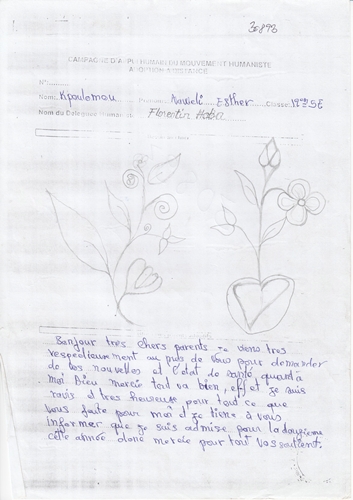 30893
CAMPAGNE D'APPUI HUMAIN DU MOUVEMENT HUMANISTE
ADOPTION-ASSISTANCE
N°:
Nom: Kpoulomou Esther Classe:
Nom du Délégué Humaniste Florentin Haba
Bonjour tres chers parents je viens tres
respectieusement au près de vous pour demander
de vos nouvelles et l'etat de santé, quant à
moi Dieu mercie tout va bien, eff et je suis
ravis et tres heureuse pour tout ce que
vous faite pour moi et je tiens à vous
informer que je suis admise pour la douzieme
cette année donc mercie pour tout vos soutient.